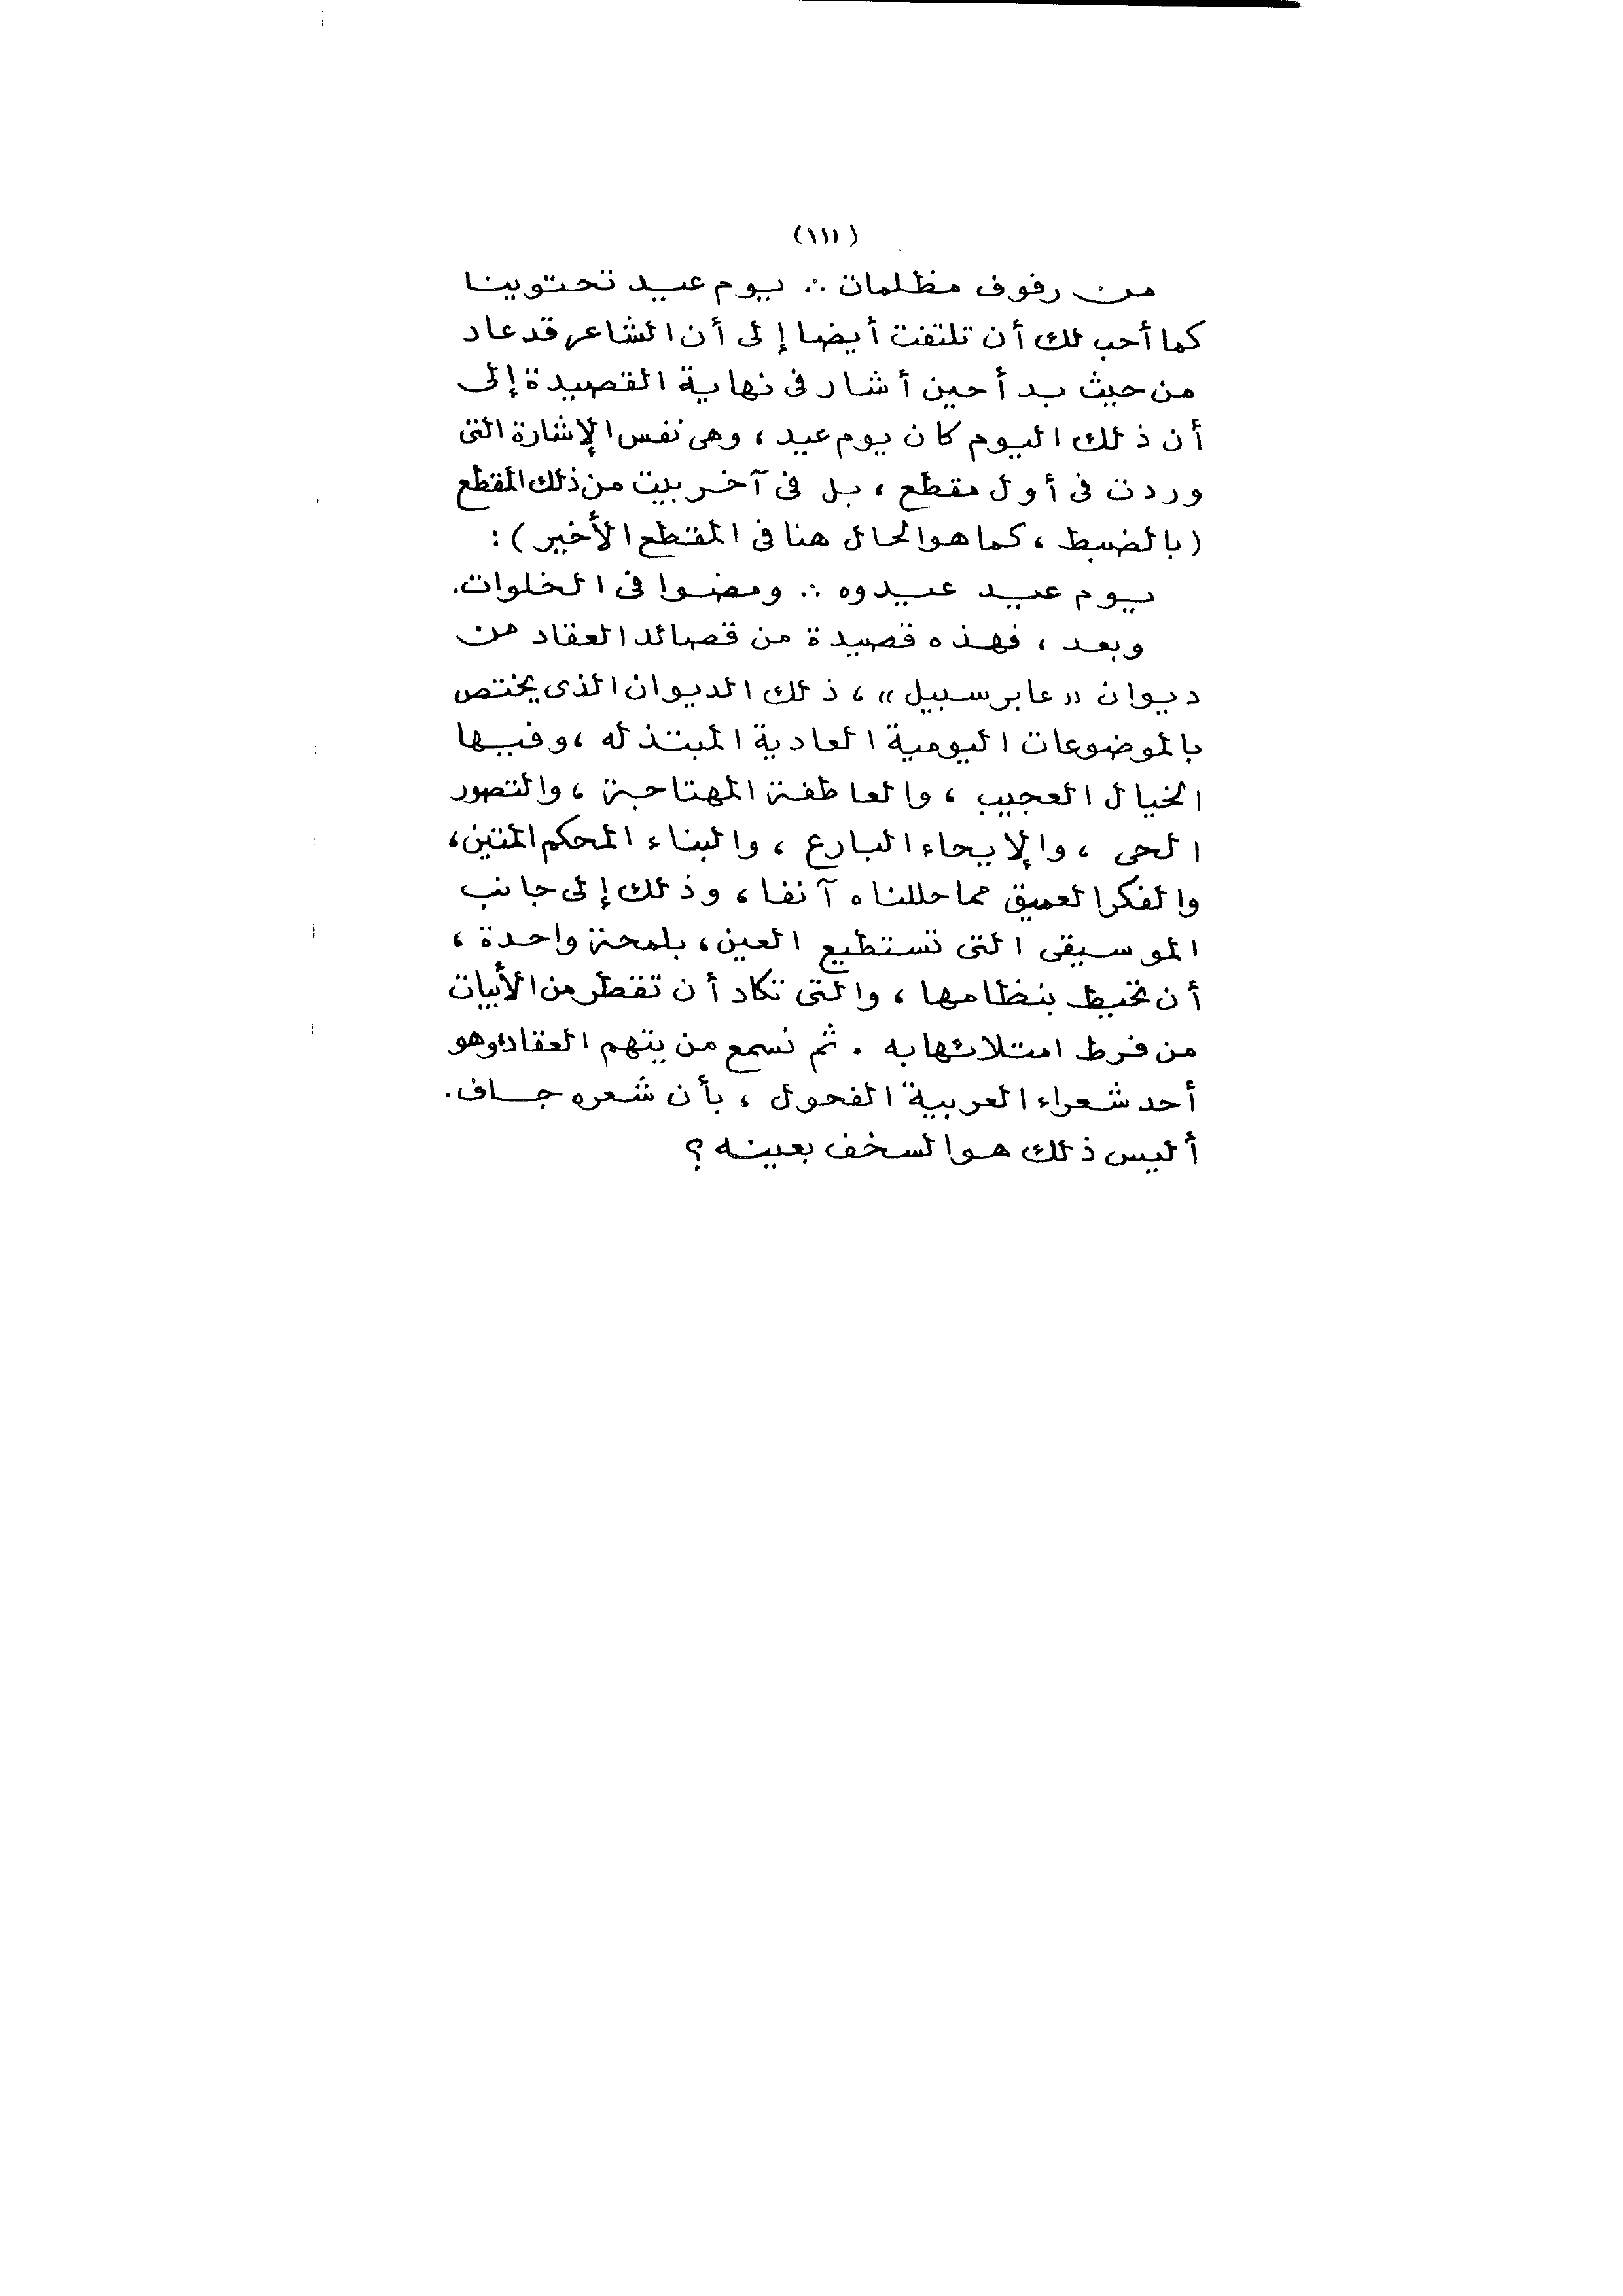 (١١١)
من رفوف مظلمات ∴ يوم عيد تحتوينا
كما أحب لك أن تلتفت أيضا إلى أن الشاعر قد عاد
من حيث بدأ حين أشار فى نهاية القصيدة إلى
أن ذلك اليوم كان يوم عيد ، وهى نفس الإشارة التى
وردت فى أول مقطع ، بل فى آخر بيت من ذلك المقطع
(بالضبط ، كما هو الحال هنا فى المقطع الأخير) :
يوم عيد عيدوه ∴ ومضوا فى الخلوات .
وبعد ، فهذه قصيدة من قصائد العقاد من
ديوان « عابر سبيل » ، ذلك الديوان الذى يختص
بالموضوعات اليومية العادية المبتذله ، وفيها
الخيال العجيب ، والعاطفة المهتاجة ، والتصور
الحى ، والإيحاء البارع ، والبناء المحكم المتين ،
والفكر العميق مما حللناه آنفا ، وذلك إلى جانب
الموسيقى التى تستطيع العين ، بلمحة واحدة ،
أن تحيط بنظامها ، والتى تكاد أن تقطر من الأبيات
من فرط امتلائها به . ثم نسمع من يتهم العقاد ، وهو
أحد شعراء العربية الفحول ، بأن شعره جاف .
أليس ذلك هو السخف بعينه ؟